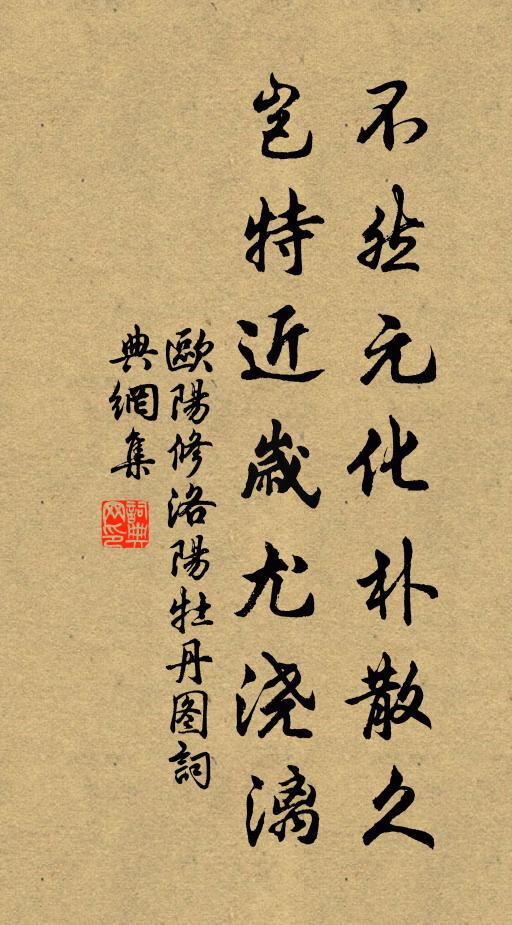 不然元化朴散久
岂特近歲尤浇漓
歐陽修洛陽牡丹图詞
典網集
詞典网印